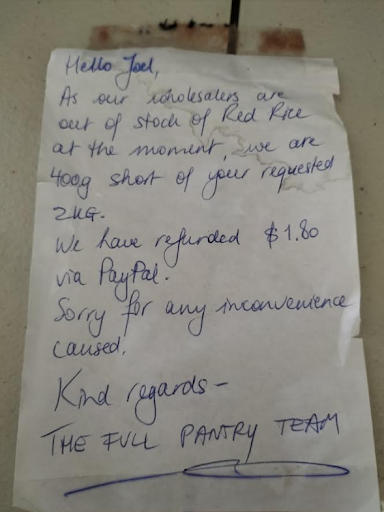 Hello Joel,
As our wholesalers are
out of stock of Red Rice
at the moment, we are
400g short of your requested
2KG.
We have refunded $1.80
via PayPal.
Sorry for any inconvenience
caused.
Kind regards -
THE FULL PANTRY TEAM